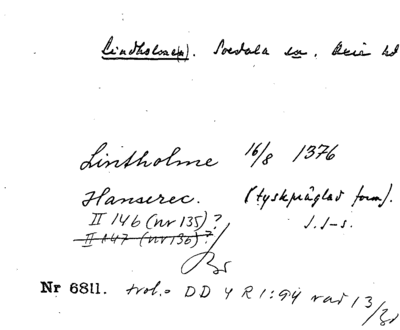 Lindholme(n). Svedala sn. Bara hd
Lintholme 16/8 1376
Hanserec. (tyskpräglad form).
II 146 (nr 135)? J.J-s.
II 147 (nr 136)?
Nr 6811. trol. DD 4 R 1:94 rad 13